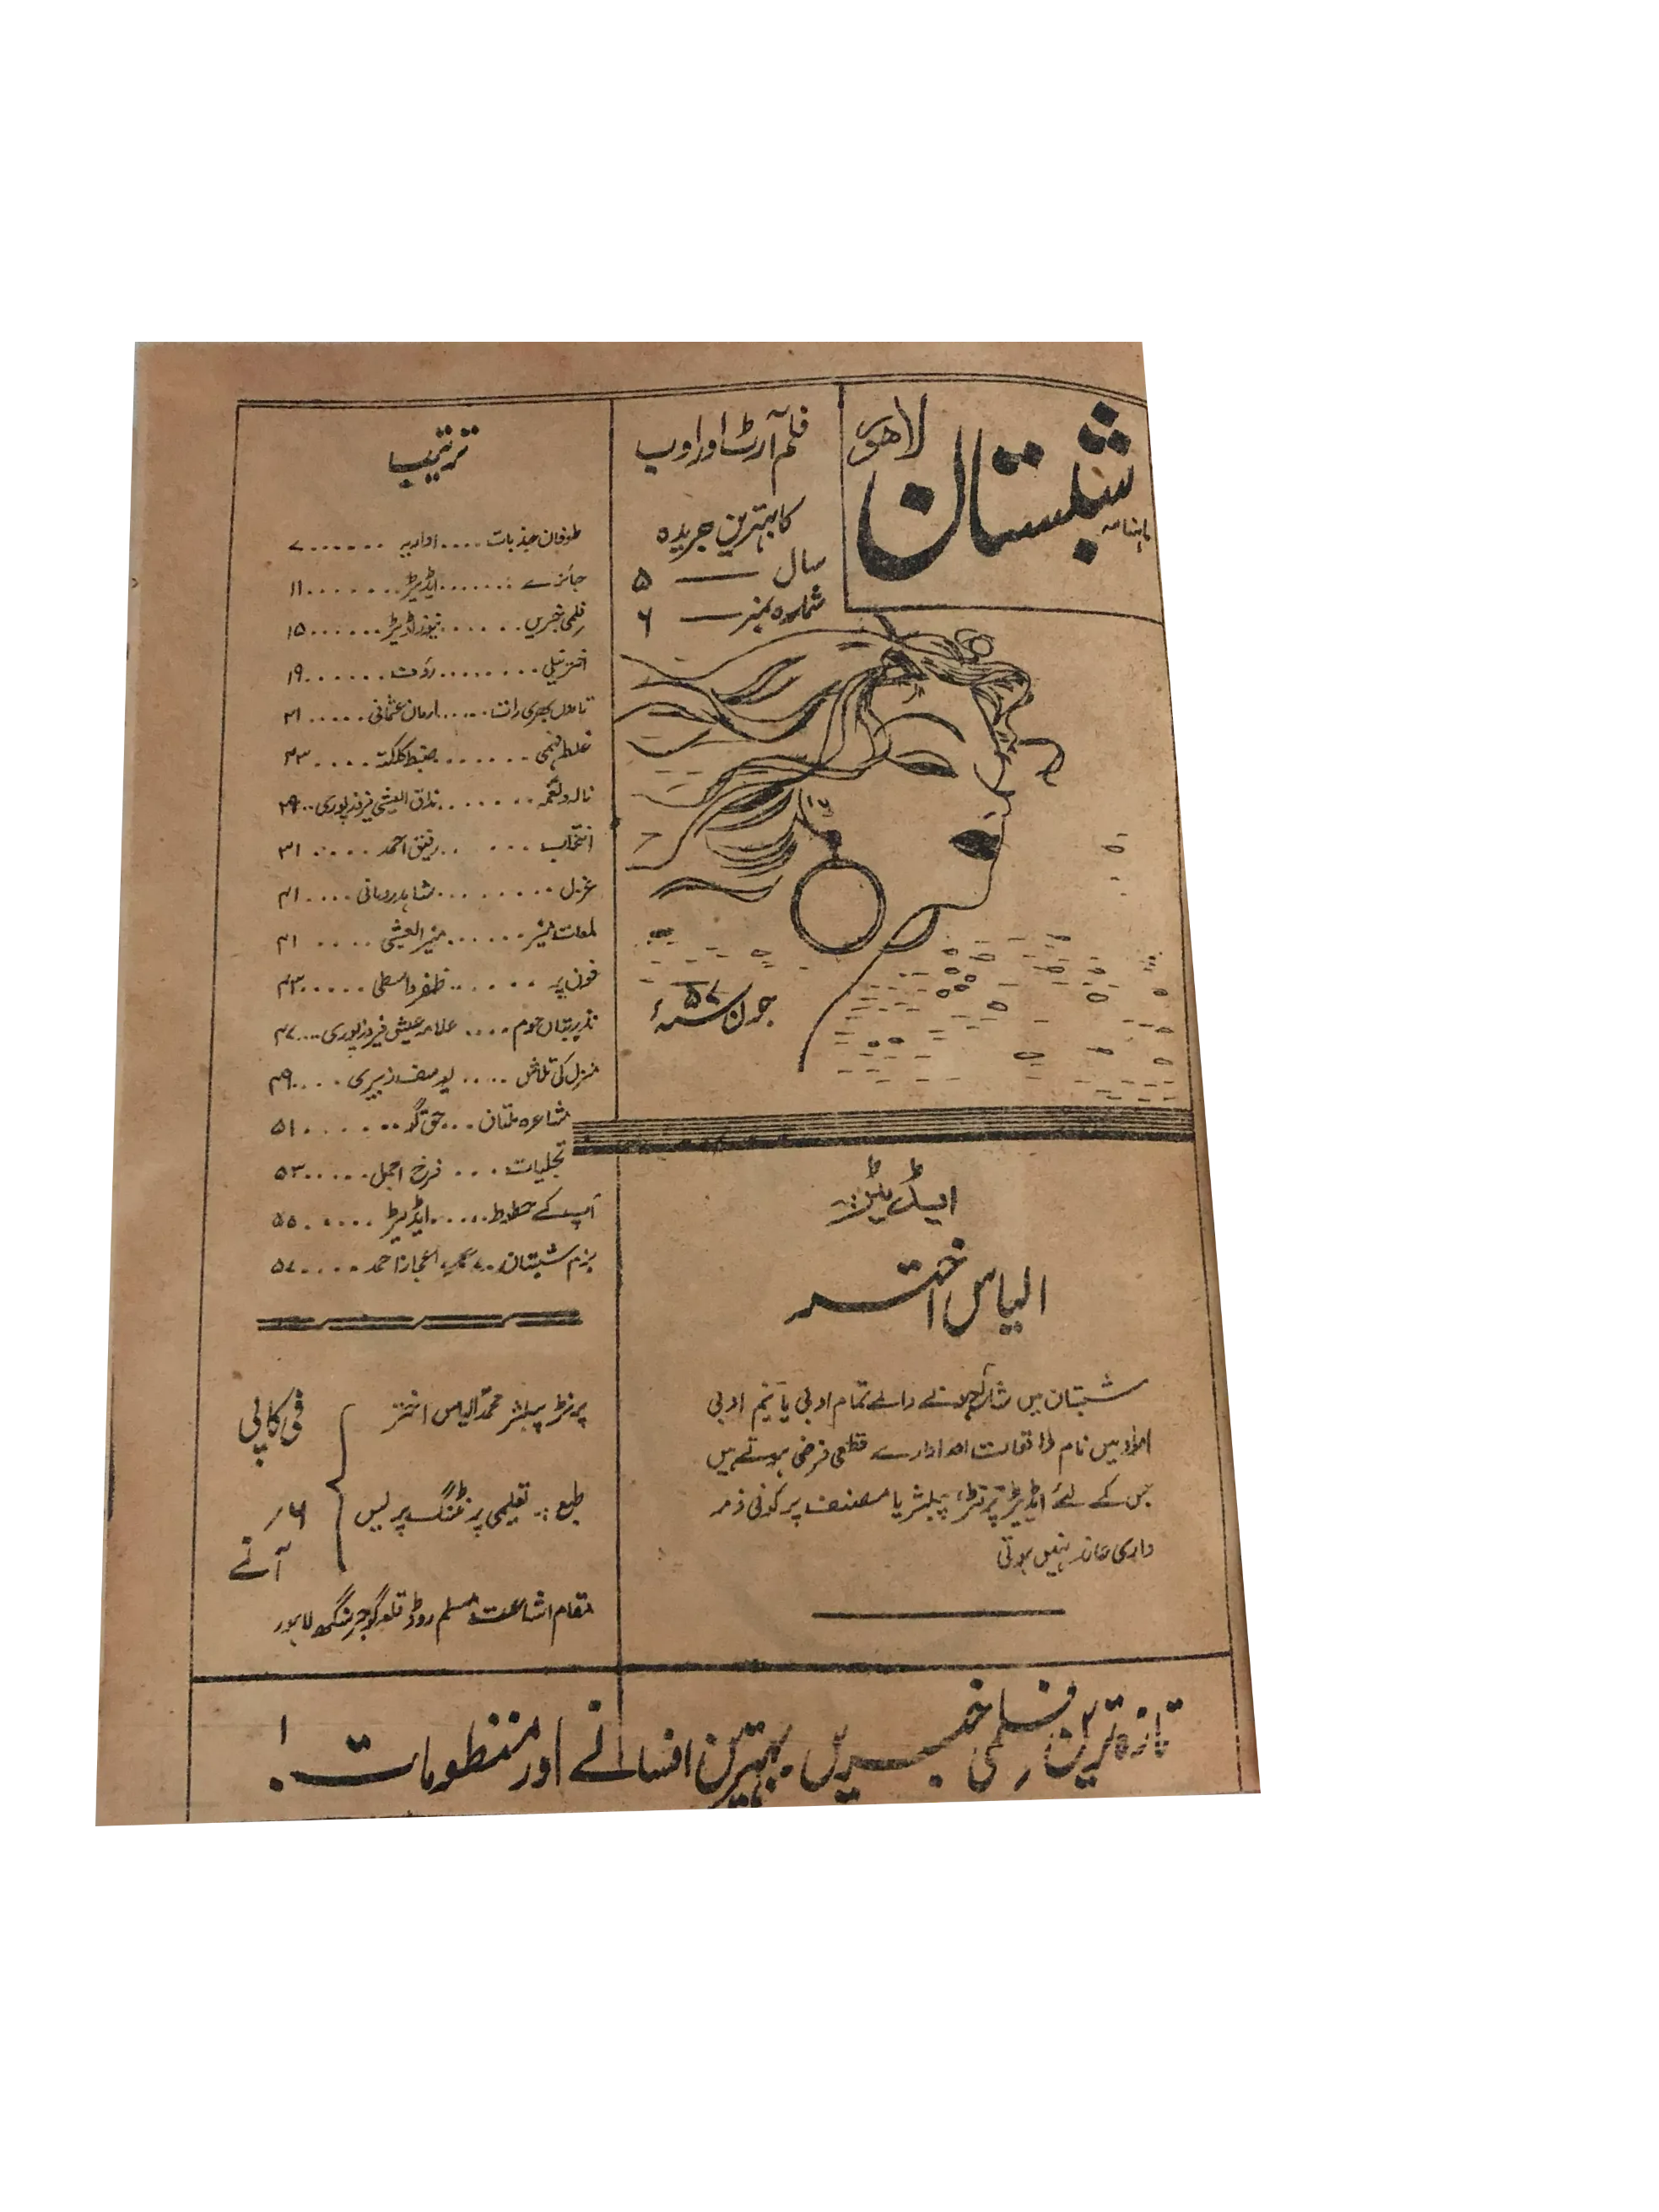 ماہنامہ
شبستان
لاہور
فلم آرٹ اور ادب
کا بہترین جریدہ
سال — ۵
شمارہ نمبر — ۶
جون ۵۷ء
ایڈیٹر:۔
الیاس اختر
شبستان میں شائع ہونے والے تمام ادبی یا نیم ادبی
نام واقعات اور ادارے قطعی فرضی ہوتے ہیں
جس کے لئے ایڈیٹر، پرنٹر، پبلشر یا مصنف پر کوئی ذمہ
داری عائد نہیں ہوتی
ترتیب
طوفان جذبات .... اداریہ ...... ۷
جائزے ....... ایڈیٹر ....... ۱۱
فلمی خبریں ...... نیوز ایڈیٹر ...... ۱۵
........ رؤف ...... ۱۹
بھری رات ...... ارمان عثمانی ..... ۲۱
غلط فہمی ....... ضبط کلکتہ .... ۲۳
نالہ و نغمہ ....... مذاق العیشی فیروزپوری .. ۲۹
انتخاب ... .. رفیق احمد .... ۳۱
غزل ........ شاہد رومانی .... ۴۱
لمعات منیر ...... منیر العیشی .... ۴۱
فون پر ...... ظفر واسطی ..... ۴۳
.... علامہ عیشی فیروزپوری ... ۴۷
منزل کی تلاش ..... یوسف زبیری ... ۴۹
مشاعرہ ملتان ... حق گو ...... ۵۱
تجلیات ... فرخ اجمل ..... ۵۳
آپ کے خطوط ..... ایڈیٹر ...... ۵۵
بزم شبستان ... اعجاز احمد .... ۵۷
پرنٹر پبلشر محمد الیاس اختر
طبع:۔ تعلیمی پرنٹنگ پریس
فی کاپی
۶/
آنے
مقام اشاعت مسلم روڈ قلعہ گوجر سنگھ لاہور
تازہ ترین فلمی خبریں بہترین افسانے اور منظومات!